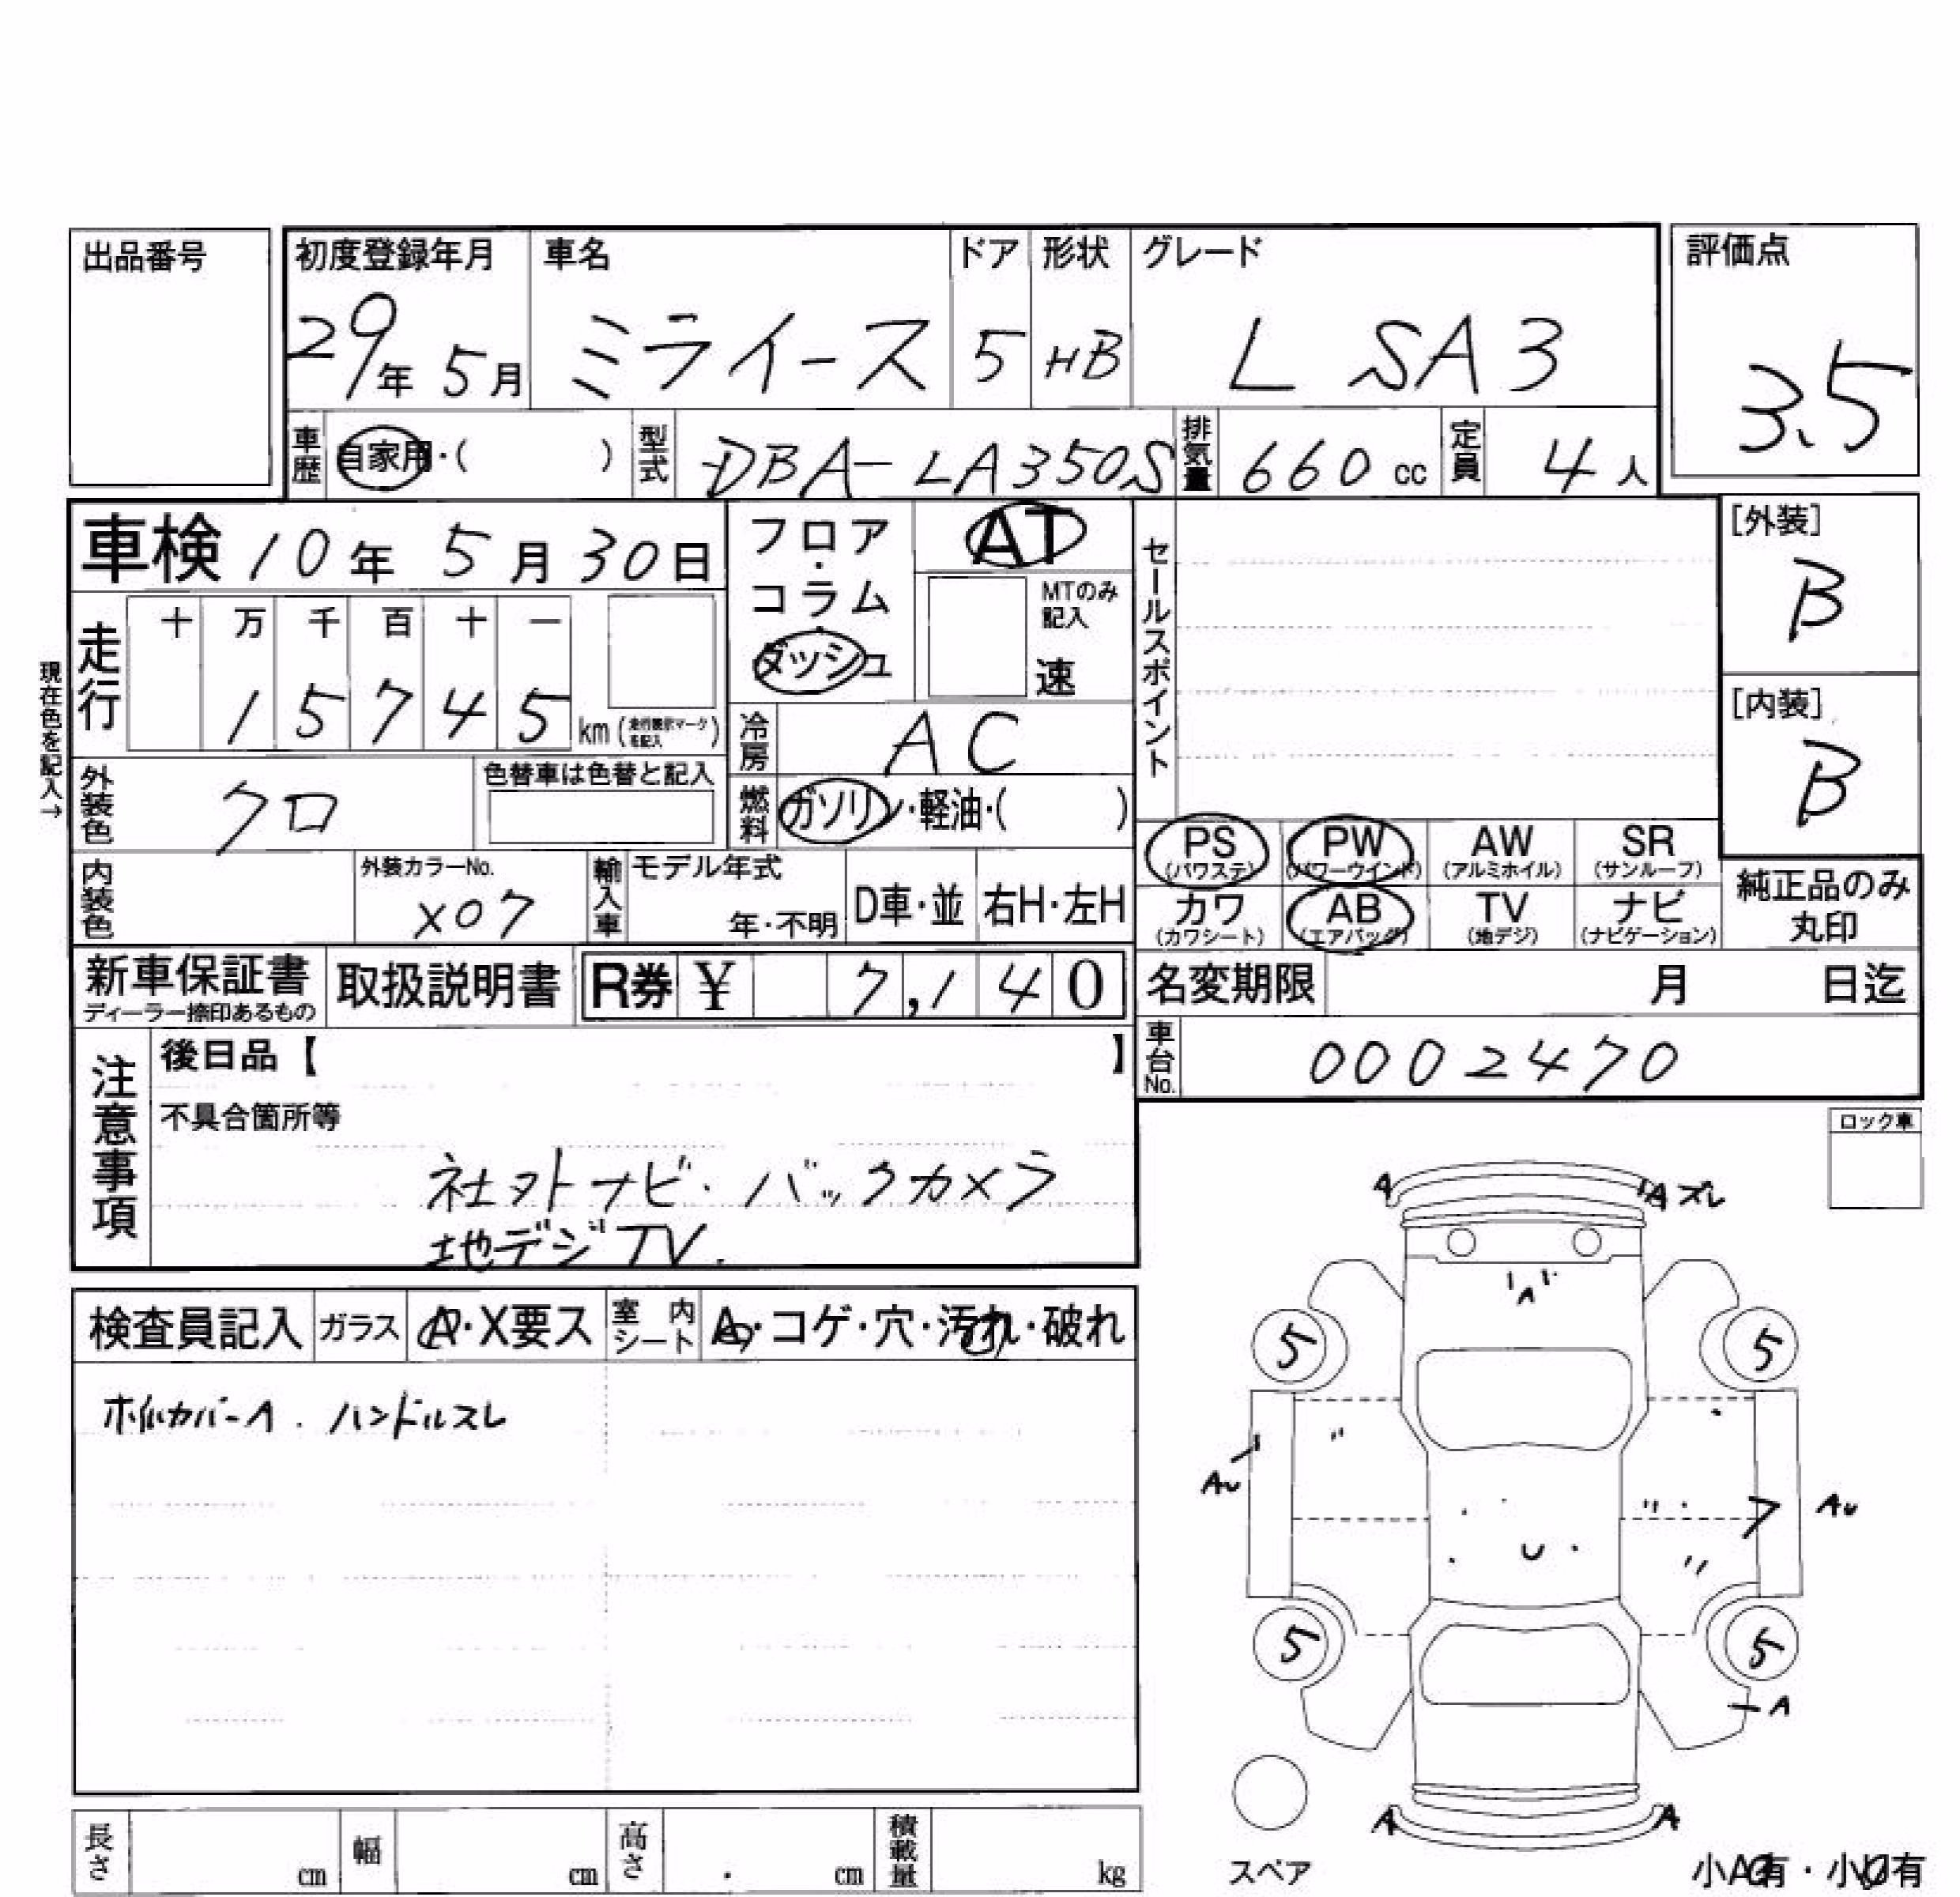 出品番号
初度登録年月 車名 ドア 形状 グレード 評価点
29年 5月 ミライース 5 HB L SA3 3.5
車歴 自家用・( ) 型式 DBA-LA350S 排気量 660 cc 定員 4人
車検 10年 5月 30日
フロア・コラム・ダッシュ
AT
MTのみ記入
速
セールスポイント
[外装]
B
[内装]
B
現在色を記入→
走行 十 万 千 百 十 一
1 5 7 4 5 km (走行表示マークを記入)
冷房 AC
外装色 クロ 色替車は色替と記入
燃料 ガソリン・軽油・( )
PS (パワステ) PW (パワーウインド) AW (アルミホイル) SR (サンルーフ)
カワ (カワシート) AB (エアバッグ) TV (地デジ) ナビ (ナビゲーション)
純正品のみ丸印
内装色 外装カラーNo. X07 輸入車 モデル年式 年・不明 D車・並 右H・左H
新車保証書 ディーラー捺印あるもの 取扱説明書 R券 ¥ 7,140
名変期限 月 日迄
車台No. 0002470
注意事項
後日品【 】
不具合箇所等
社外ナビ・バックカメラ
地デジTV.
ロック車
検査員記入 ガラス A・X要ス 室内シート A・コゲ・穴・汚れ・破れ
ホイルカバーA . ハンドルスレ
A A ズレ
A
5 5
AU AU
U
5 5
A
A A
スペア
小A有・小U有
長さ cm 幅 cm 高さ . cm 積載量 kg